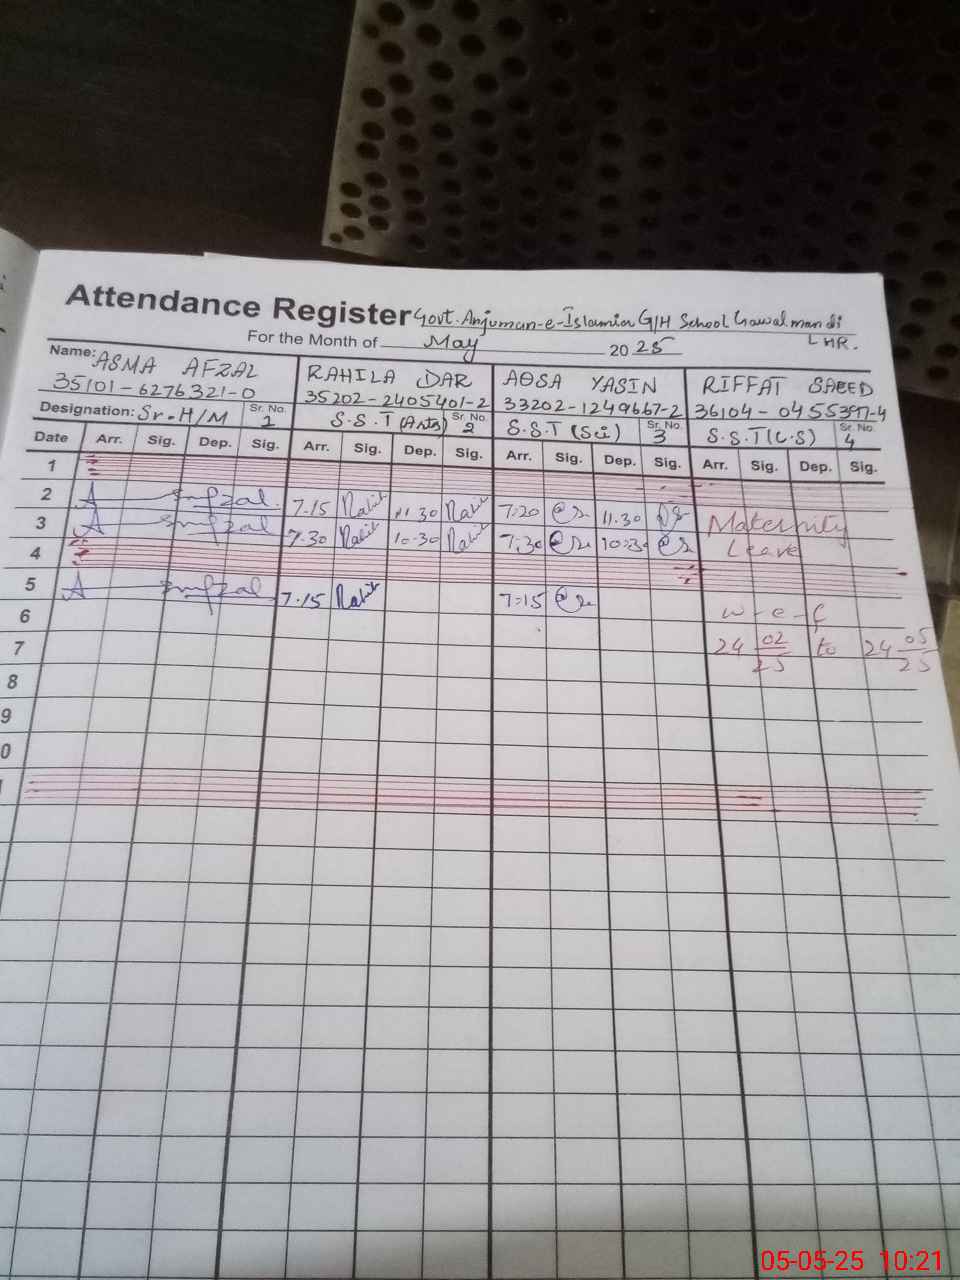 Attendance Register Govt. Anjuman-e-Islamia G/H School Gawalmandi
LHR.
For the Month of May 2025
Name: ASMA AFZAL RAHILA DAR AQSA YASIN RIFFAT SAEED
35101-6276321-0 35202-2405401-2 33202-1249667-2 36104-0455397-4
Designation: Sr.H/M Sr. No. 1 S.S.T (Arts) Sr. No. 2 S.S.T (Sci) Sr. No. 3 S.S.T (C.S) Sr. No. 4
Date Arr. Sig. Dep. Sig. Arr. Sig. Dep. Sig. Arr. Sig. Dep. Sig. Arr. Sig. Dep. Sig.
1
2 7.15 Rahil 11.30 Rahil 7:20 11.30 Maternity
3 7.30 Rahil 10.30 Rahil 7:30 10:30 Leave
4
5 7.15 Rahil 7:15
6 w-e-f
7 24 02/25 to 24 05/25
8
9
0
05-05-25 10:21